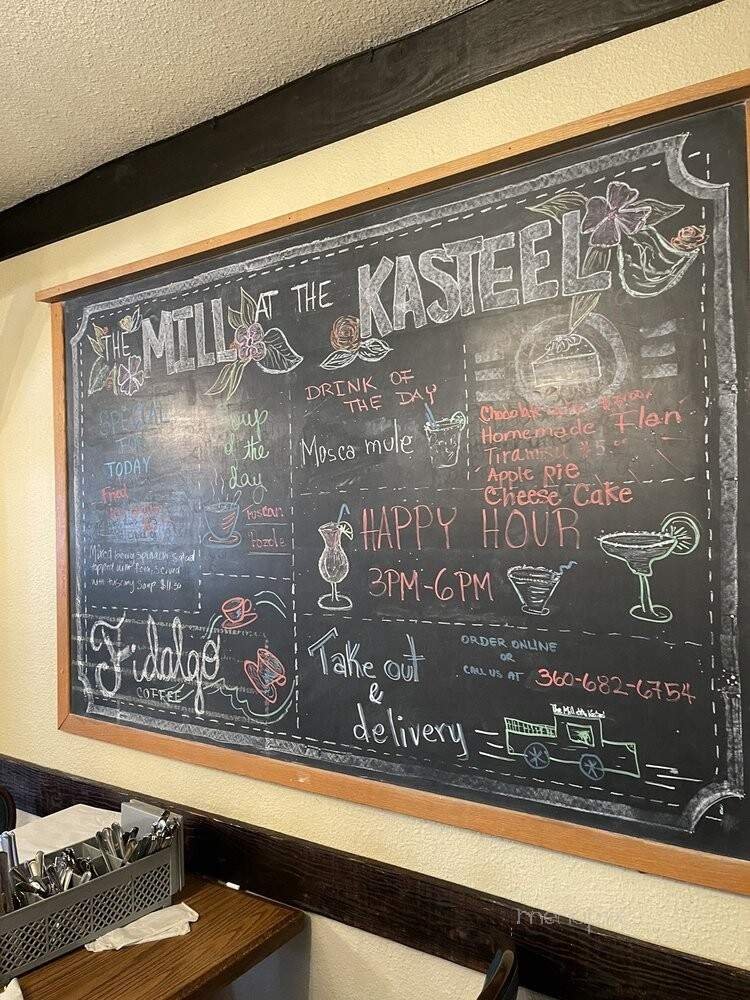 THE MILL AT THE KASTEEL
SPECIAL
FOR
TODAY
Fried
Mixed being Spinach Salad
topped with Pear, Served
with tuscany Soup $11.50
Soup
of the
day
Tuscan
Pozole
Fidalgo
COFFEE
DRINK OF
THE DAY
Mosca mule
Chocolate
Homemade Flan
Tiramisu $5
Apple pie
Cheese Cake
HAPPY HOUR
3PM-6PM
Take out
&
delivery
ORDER ONLINE
OR
CALL US AT 360-682-6754
The Mill at the Kasteel